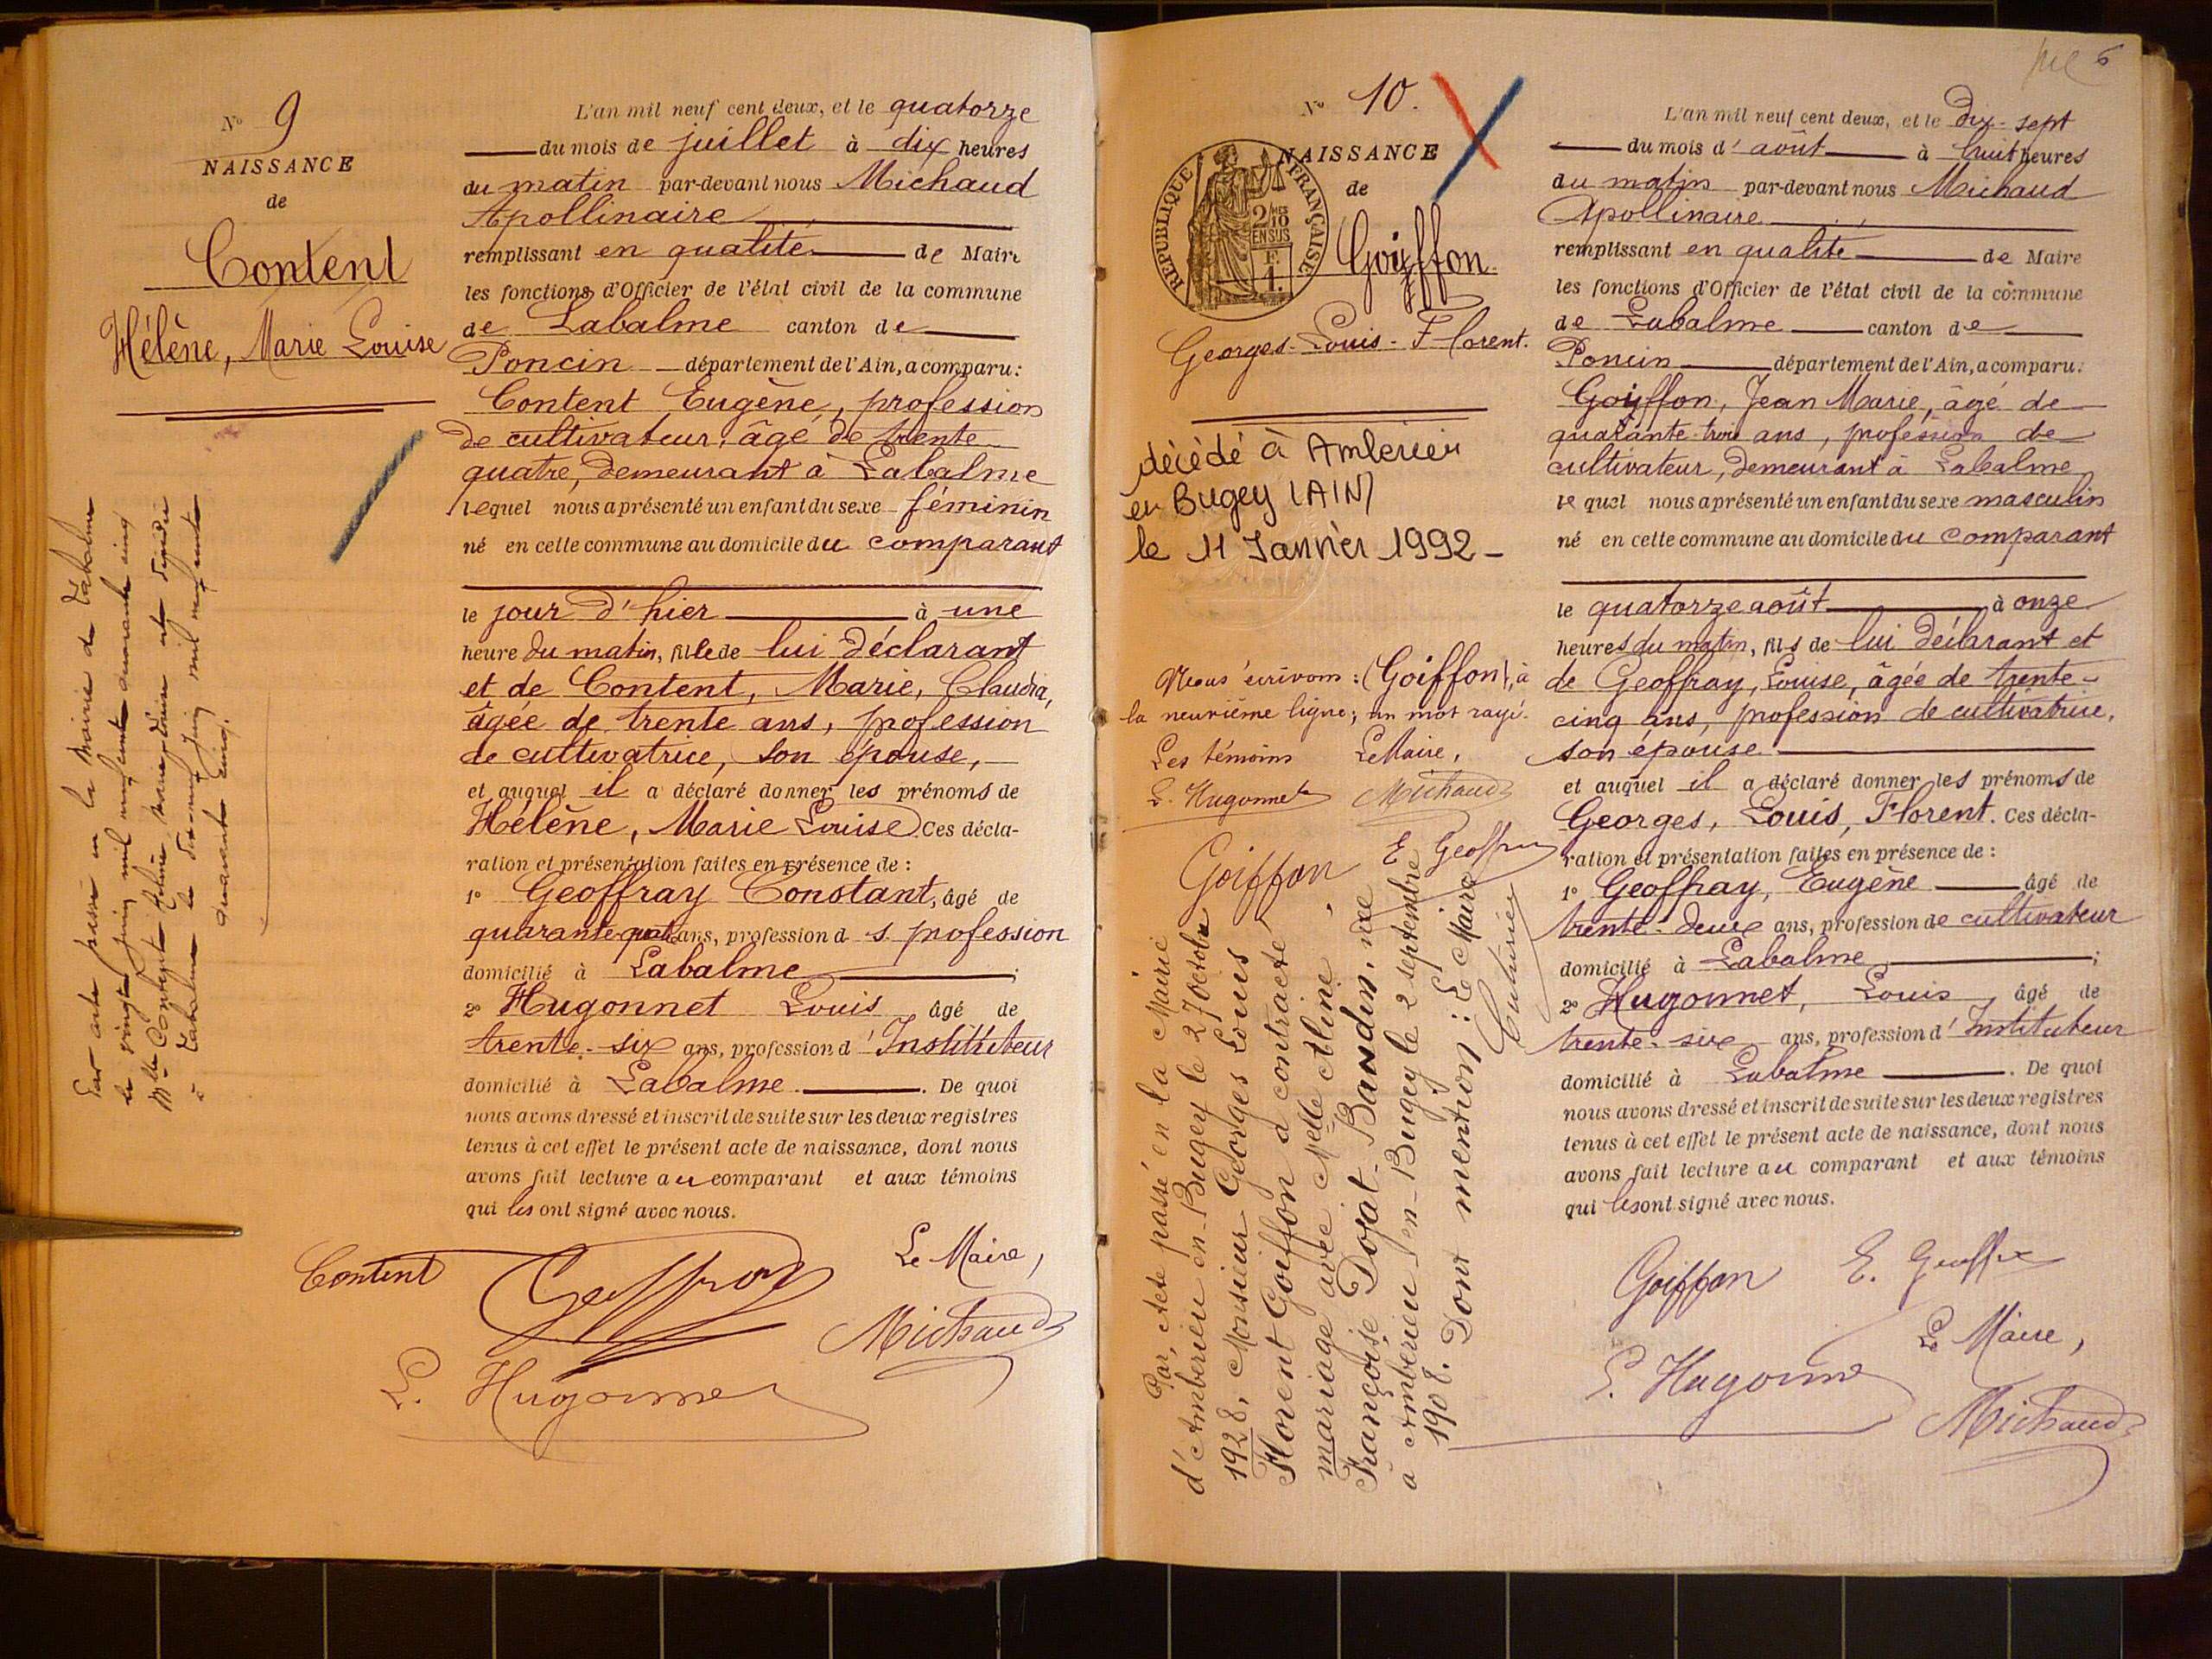 N° 9
NAISSANCE
de
Content
Hélène, Marie Louise
Par acte passé en la Mairie de Labalme
le vingt juin mil neuf cent quarante cinq
Melle Content Hélène Marie Louise
à Labalme le dix-neuf juin mil neuf cent
quarante cinq.
L'an mil neuf cent deux, et le quatorze
du mois de juillet à dix heures
du matin par-devant nous Michaud
Apollinaire
remplissant en qualité de Maire
les fonctions d'Officier de l'état civil de la commune
de Labalme canton de
Poncin département de l'Ain, a comparu :
Content Eugène, profession
de cultivateur, âgé de trente
quatre, demeurant à Labalme
lequel nous a présenté un enfant du sexe féminin
né en cette commune au domicile du comparant
le jour d'hier à une
heure du matin, fille de lui déclarant
et de Content, Marie, Claudia,
âgée de trente ans, profession
de cultivatrice, son épouse,
et auquel il a déclaré donner les prénoms de
Hélène, Marie Louise. Ces décla-
ration et présentation faites en présence de :
1° Geoffray Constant, âgé de
quarante-quatre ans, profession d s. profession
domicilié à Labalme ;
2° Hugonnet Louis âgé de
trente-six ans, profession d'Instituteur
domicilié à Labalme. De quoi
nous avons dressé et inscrit de suite sur les deux registres
tenus à cet effet le présent acte de naissance, dont nous
avons fait lecture au comparant et aux témoins
qui les ont signé avec nous.
Content Geoffray Le Maire,
L. Hugonnet Michaud
N° 10.
NAISSANCE
de
REPUBLIQUE FRANÇAISE
2/10 EN SUS
F. 1.
Goiffon
Georges-Louis-Florent.
décédé à Ambérieu
en Bugey (AIN)
le 11 Janvier 1992 -
Nous écrivons : (Goiffon), à
la neuvième ligne ; un mot rayé.
Les témoins Le Maire,
L. Hugonnet Michaud
Goiffon E Geoffray
Par Acte passé en la Mairie
d'Ambérieu en-Bugey le 27 Octobre
1928, Monsieur Georges Louis
Florent Goiffon a contracté
mariage avec Melle Aline
Françoise Dojat-Baudin, née
à Ambérieu-en-Bugey le 2 septembre
1908. Dont mention : Le Maire
6
L'an mil neuf cent deux, et le dix-sept
du mois d'août à huit heures
du matin par-devant nous Michaud
Apollinaire
remplissant en qualité de Maire
les fonctions d'Officier de l'état civil de la commune
de Labalme canton de
Poncin département de l'Ain, a comparu :
Goiffon, Jean Marie, âgé de
quarante-trois ans, profession de
cultivateur, demeurant à Labalme
lequel nous a présenté un enfant du sexe masculin
né en cette commune au domicile du comparant
le quatorze août à onze
heures du matin, fils de lui déclarant et
de Geoffray, Louise, âgée de trente-
cinq ans, profession de cultivatrice,
son épouse
et auquel il a déclaré donner les prénoms de
Georges, Louis, Florent. Ces décla-
ration et présentation faites en présence de :
1° Geoffray, Eugène âgé de
trente-deux ans, profession de cultivateur
domicilié à Labalme ;
2° Hugonnet, Louis, âgé de
trente-six ans, profession d'Instituteur
domicilié à Labalme. De quoi
nous avons dressé et inscrit de suite sur les deux registres
tenus à cet effet le présent acte de naissance, dont nous
avons fait lecture au comparant et aux témoins
qui les ont signé avec nous.
Goiffon E. Geoffray
Le Maire,
L. Hugonnet Michaud